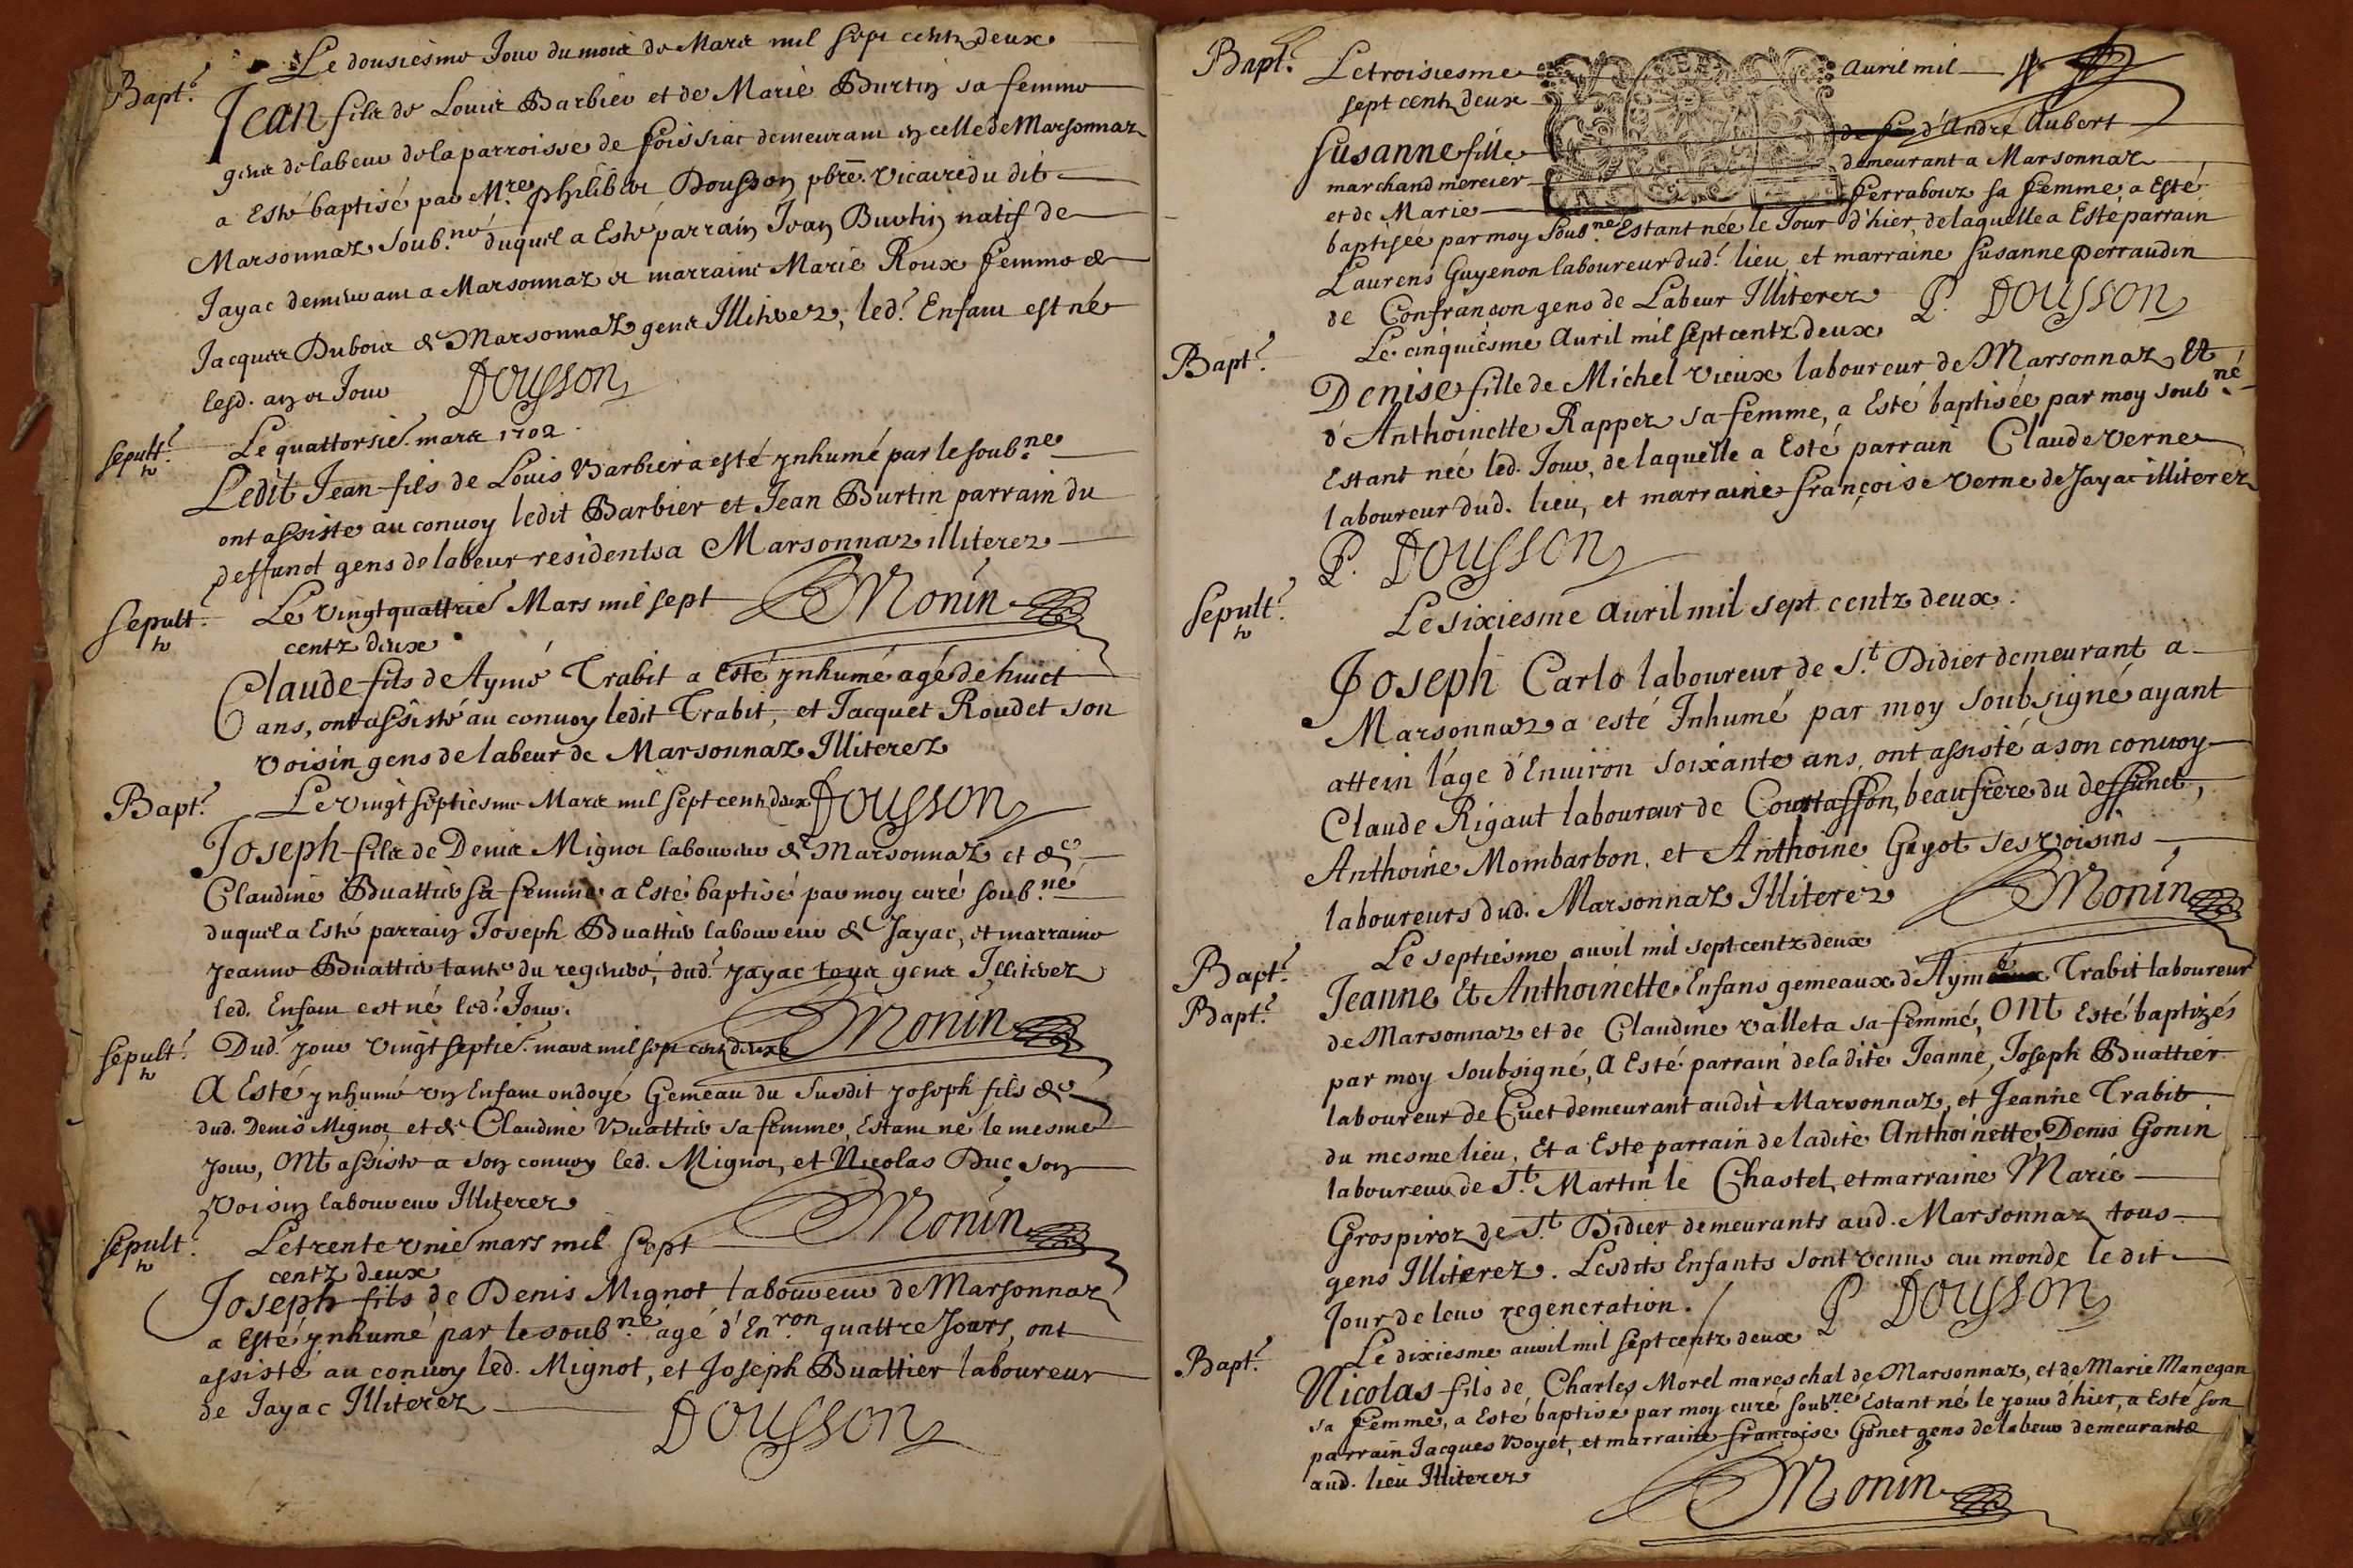 Le dousiesme Jour du mois de Mars mil sept centz deux
Bapt.e
Jean fils de Louis Barbier et de Marie Burtin sa femme
gens de labeur de la parroisse de foissiac demeurant en celle de Marsonnaz
a Esté baptisé par M.re philibert Dousson pbre. vicaire du dit
Marsonnaz soub.né duquel a Esté parrain Jean Burtin natif de
Jayac demeurant a Marsonnaz et marraine Marie Roux femme de
Jacques Dubois de Marsonnaz gens Illiterez, led.t Enfant est né
lesd. an et Jour DOUSSON
sepult.re
Le quattorsie. mars 1702.
Ledit Jean fils de Louis Barbier a esté ynhumé par le soub.né
ont assisté au convoy ledit Barbier et Jean Burtin parrain du
deffunot gens de labeur residents a Marsonnaz illiterez
Sepult.re
Le vingt quattrie. Mars mil sept Monin
centz deux
Claude fils de Aymé Trabit a Esté ynhumé agé de huict
ans, ont assisté au convoy ledit Trabit, et Jacquet Roudet son
voisin gens de labeur de Marsonnaz Illiterez
Bapt.e
Le vingt septiesme Mars mil sept centz deux DOUSSON
Joseph fils de Denis Mignot laboureur de Marsonnaz et de
Claudine Buattier sa femme a Esté baptisé par moy curé soub.né
duquel a Esté parrain Joseph Buattier laboureur de Jayac, et marraine
Jeanne Buattier tante du regeneré, dud.t Jayac tous gens Illiterez
led. Enfant est né led.t Jour. Monin
sepult.re
Dud.t Jour vingt septie. mars mil sept centz deux
A Esté ynhumé un Enfant ondoyé Gemeau du susdit Joseph fils de
dud. Denis Mignot et de Claudine Buattier sa femme, Estant né le mesme
Jour, ONt assisté a son convoy led. Mignot, et Nicolas Duc son
voisin laboureur Illiterez Monin
Sepult.re
Le trente unie. mars mil sept
centz deux
Joseph fils de Denis Mignot laboureur de Marsonnaz
a Esté ynhumé par le soub.né agé d'En.ron quattre Jours, ont
assisté au convoy led. Mignot, et Joseph Buattier laboureur
de Jayac Illiterez DOUSSON
Bapt.e
Le troisiesme avril mil
sept centz deux
Susanne fille d'André Aubert
marchand mercier demeurant a Marsonnaz
et de Marie ferrabouz sa femme a Esté
baptisée par moy soub.né Estant née le Jour d'hier, de laquelle a Esté parrain
Laurens Guyenon laboureur dud.t lieu, et marraine susanne perraudin
de Confrançon gens de Labeur Illiterez P. DOUSSON
Bapt.e
Le cinquiesme Avril mil sept centz deux
Denise fille de Michel vieux laboureur de Marsonnaz, Et
d'Anthoinette Rappez sa femme, a Esté baptisée par moy soub.né
Estant née led. Jour, de laquelle a Esté parrain Claude verne
laboureur dud. lieu, et marraine françoise verne de Jayac illiterez
P. DOUSSON
Sepult.re
Le sixiesme Avril mil sept centz deux.
Joseph Carlo laboureur de S.t Didier demeurant a
Marsonnaz a esté Inhumé par moy soubsigné ayant
attein l'age d'Environ soixante ans, ont assisté a son convoy
Claude Rigaut laboureur de Courtaffon, beaufrere du deffunct,
Anthoine Mombarbon, et Anthoine Guyot ses voisins
laboureurs dud. Marsonnaz Illiterez Monin
Le septiesme avril mil sept centz deux
Bapt.e
Bapt.e
Jeanne Et Anthoinette Enfans gemeaux d'Aymé Trabit laboureur
de Marsonnaz et de Claudine valleta sa femme, ONt Esté baptizés
par moy soubsigné, A Esté parrain de la dite Jeanne, Joseph Buattier
laboureur de Cuet demeurant audit Marsonnaz, et Jeanne Trabit
du mesme lieu, Et a Esté parrain de ladite Anthoinette, Denis Gonin
laboureur de S.t Martin le Chastel, et marraine Marie
Grospiroz de S.t Didier demeurants aud. Marsonnaz tous
gens Illiterez. Lesdits Enfants sont venus au monde le dit
Jour de leur regeneration. P DOUSSON
Le dixiesme avril mil sept centz deux
Bapt.e
Nicolas fils de Charles Morel mareschal de Marsonnaz, et de Marie Manegan
sa femme, a Esté baptisé par moy curé soub.né Estant né le jour d'hier, a Esté son
parrain Jacques Boyet, et marraine françoise Gonet gens de labeur demeurants
aud. lieu Illiterez Monin